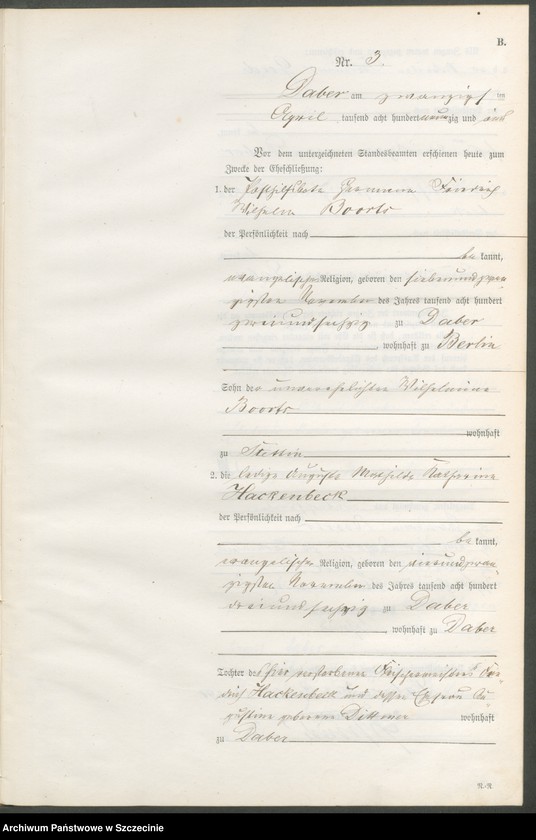 B.
Nr. 3.
Daber am zwanzigsten
April tausend acht hundert neunzig und
Vor dem unterzeichneten Standesbeamten erschienen heute zum
Zwecke der Eheschließung:
1. der Posthilfsbote Hermann Friedrich
Wilhelm Boorts
der Persönlichkeit nach
be kannt,
evangelischer Religion, geboren den siebenundzwan-
zigsten November des Jahres tausend acht hundert
zweiundsechzig zu Daber
, wohnhaft zu Berlin
Sohn der unverehelichten Wilhelmine
Boorts
wohnhaft
zu Stettin
2. die ledige Auguste Mathilde Katharine
Hackenbeck
der Persönlichkeit nach
be kannt,
evangelischer Religion, geboren den
zigsten November des Jahres tausend acht hundert
dreiundsechzig zu Daber
, wohnhaft zu Daber
Tochter des hier verstorbenen Tischlermeisters Frie-
drich Hackenbeck und dessen Ehefrau Au-
gustine geborene Dittmer wohnhaft
zu Daber
Archiwum Państwowe w Szczecinie